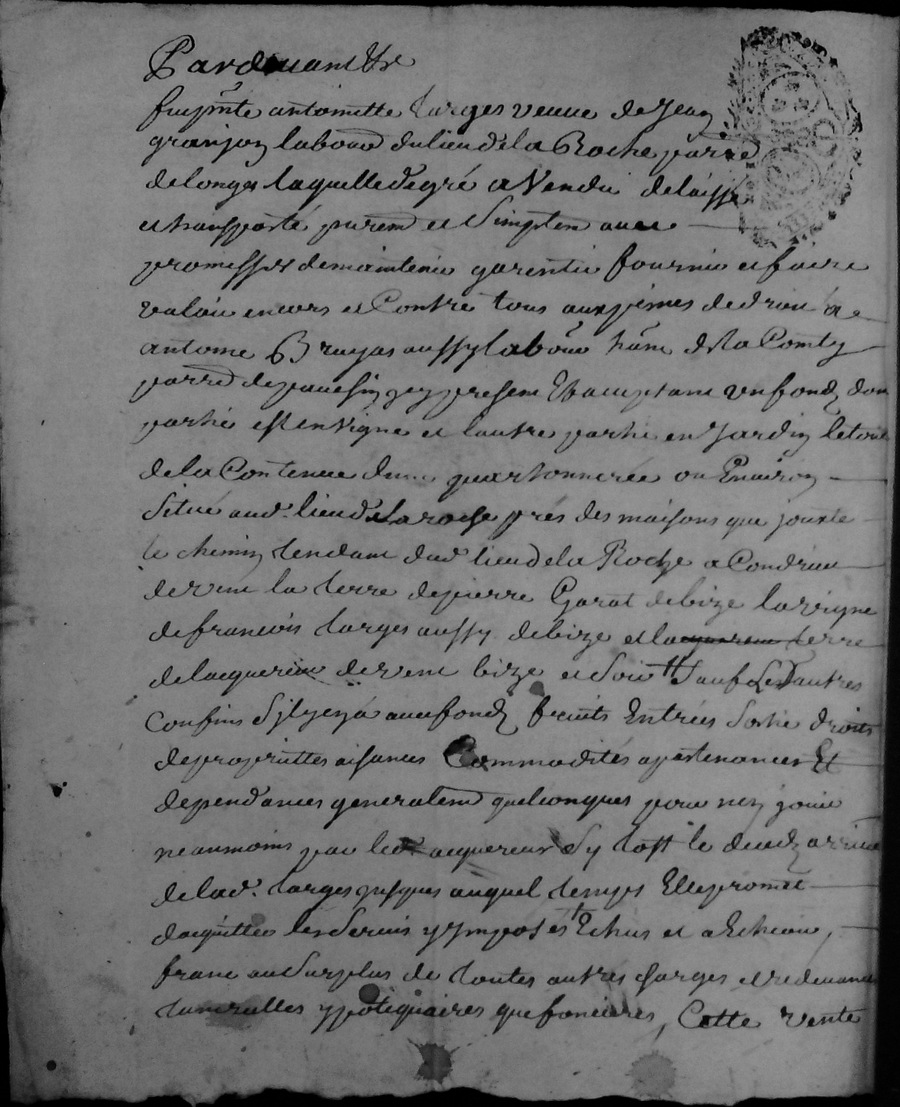 Pardevant &re
fut pnte antoinette farges veuve de Jean
granjon labour du lieu de la Roche parre
de longes laquelle de gré a Vendu delaissé
et transporté purem et Simplem avec
promesses de maintenir garentir fournir et faire
valoir envers et Contre tous aux peines de droit a
antoine Brayas aussy labour hant de la Comty
parre de pavesin yey present Et acceptant un fond, dont
partie est en vigne et l'autre partie en Jardin le tout
de la Contenue d'une quartonnerée ou Environ
Situé aud. lieu de la roche prés des maisons que jouxte
le chemin tendant dud lieu de la Roche a Condrieu
de vent la terre de pierre Garat de bize la vigne
de francois farges aussy de bize et la terre
de lacquereur de vent bize et Soir Sauf Les autres
Confins Sy lyena avec fondz fruits Entrées Sortie droits
de propriettes aisances Commodités apartenances Et
dependances generalem quelconques pour nen jouir
neaumoins par led. acquereur Sy tost le decedz arrivé
de lad. farges jusques auquel temps Elle promet
dacquitter les Servis y Imposés Echus et a Echeoir,
franc au Surplus de toutes autres charges et redevances
tant ypotiquaires que foncieres, Cette vente